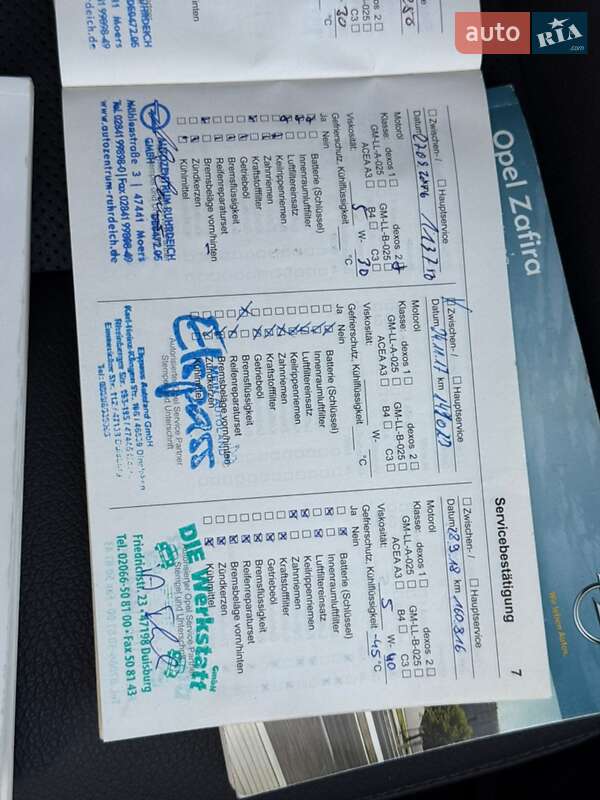 Servicebestätigung
7
Zwischen- / Hauptservice
Datum 07.09.2016 km
Motoröl dexos 1 dexos 2
Klasse: GM-LL-A-025 GM-LL-B-025
ACEA A3 B4 C3
Viskosität: 5 W- 30
Gefrierschutz, Kühlflüssigkeit °C
Ja Nein
Batterie (Schlüssel)
Innenraumluftfilter
Luftfiltereinsatz
Keilrippenriemen
Zahnriemen
Kraftstoffilter
Getriebeöl
Bremsflüssigkeit
Reifenreparaturset
Bremsbeläge vorn/hinten
Zündkerzen
Kühlmittel
AUTOZENTRUM RUHRDEICH
GMBH
Mühlenstraße 3 | 47441 Moers
Tel. 02841 99898-0 | Fax 02841 99898-49
www.autozentrum-ruhrdeich.de
Zwischen- / Hauptservice
Datum km
Motoröl dexos 1 dexos 2
Klasse: GM-LL-A-025 GM-LL-B-025
ACEA A3 B4 C3
Viskosität: W-
Gefrierschutz, Kühlflüssigkeit °C
Ja Nein
Batterie (Schlüssel)
Innenraumluftfilter
Luftfiltereinsatz
Keilrippenriemen
Zahnriemen
Kraftstoffilter
Getriebeöl
Bremsflüssigkeit
Reifenreparaturset
Bremsbeläge vorn/hinten
Zündkerzen
Kühlmittel
Autorisierter Opel Service Partner
Stempel und Unterschrift
Elspass
Elspass Autoland GmbH
Zwischen- / Hauptservice
Datum km 160.816
Motoröl dexos 1 dexos 2
Klasse: GM-LL-A-025 GM-LL-B-025
ACEA A3 B4 C3
Viskosität: 5 W- 40
Gefrierschutz, Kühlflüssigkeit -45 °C
Ja Nein
Batterie (Schlüssel)
Innenraumluftfilter
Luftfiltereinsatz
Keilrippenriemen
Zahnriemen
Kraftstoffilter
Getriebeöl
Bremsflüssigkeit
Reifenreparaturset
Bremsbeläge vorn/hinten
Zündkerzen
Kühlmittel
Autorisierter Opel Service Partner
Stempel und Unterschrift
DIE Werkstatt GmbH
Friedrichstr. 23 · 47198 Duisburg
Tel. 02066-50 81 00 · Fax 50 81 43
Opel Zafira
Wir leben Autos.
auto RIA .com